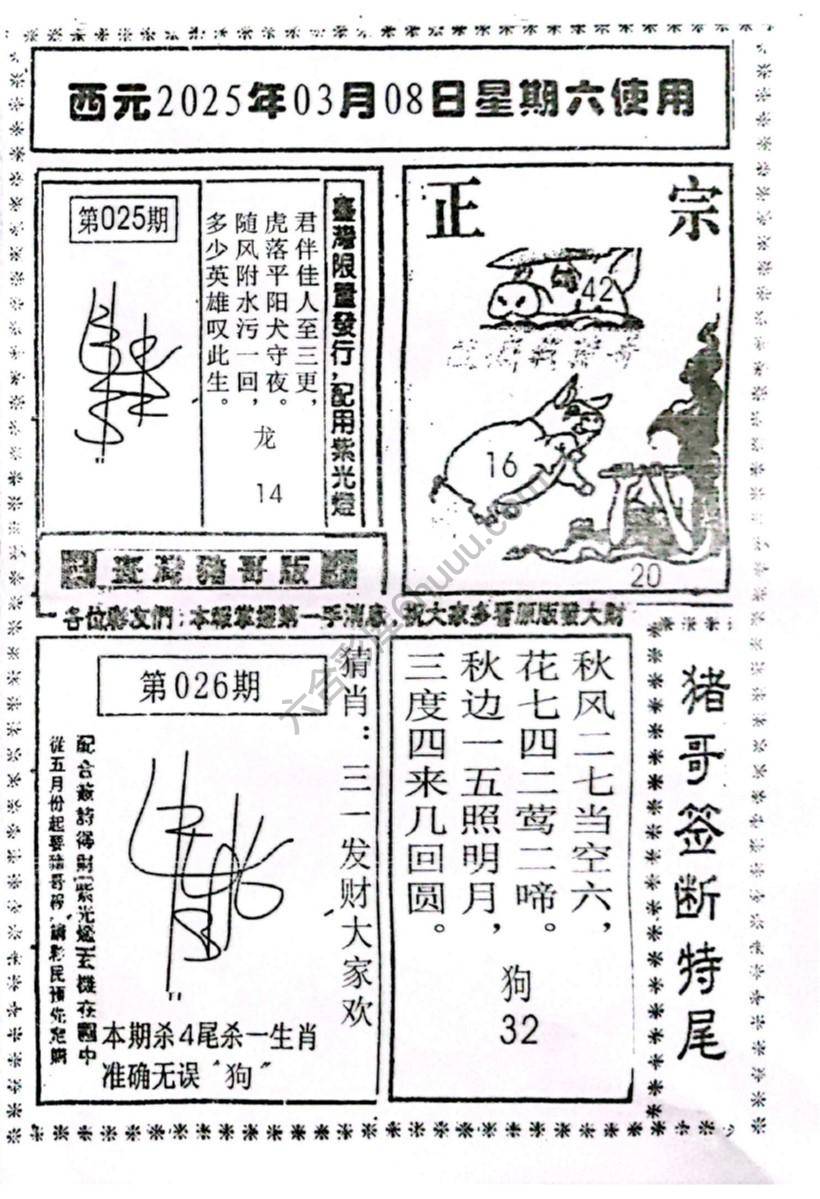 西元2025年03月08日星期六使用
第025期
臺灣限量發行，配用紫光燈
君伴佳人至三更，
虎落平阳犬守夜。
随风附水污一回，
多少英雄叹此生。
龙
14
正宗
42
16
20
臺灣豬哥版
各位彩友們：本報掌握第一手消息，祝大家多看原版發大財
第026期
猜肖：三一发财大家欢
從五月份起要豬哥報，請彩民預先定購
本期杀4尾杀一生肖
准确无误"狗"
秋风二七当空六，
花七四二莺二啼。
秋边一五照明月，
三度四来几回圆。
狗
32
猪哥签断特尾